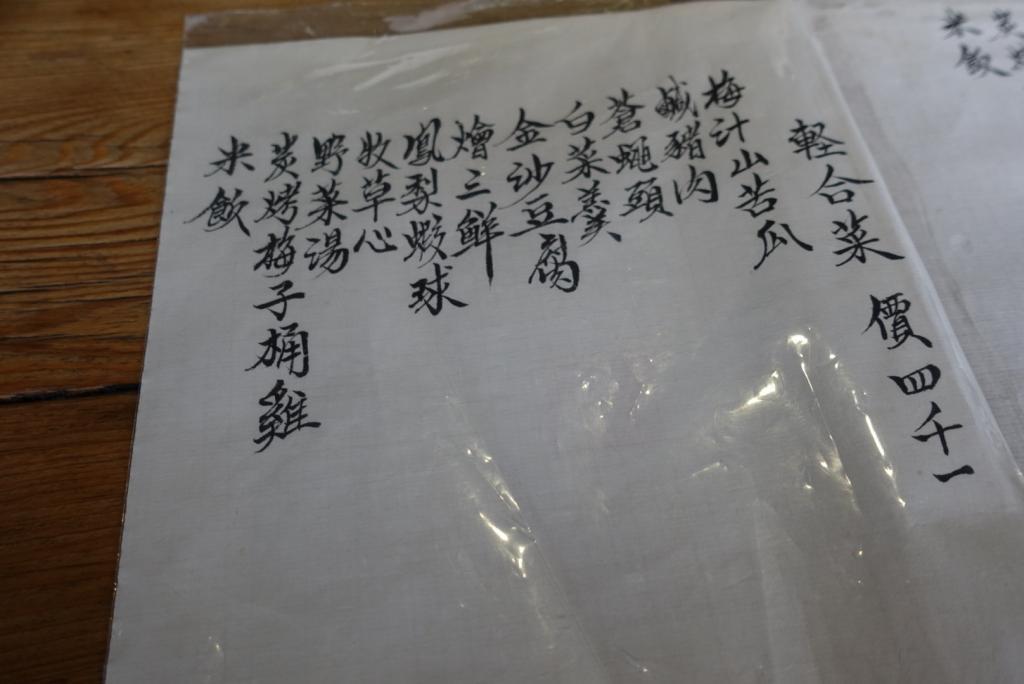 輕合菜 價四千一
梅汁山苦瓜
鹹豬肉
蒼蠅頭
白菜羹
金沙豆腐
燴三鮮
鳳梨蝦球
牧草心
野菜湯
炭烤梅子桶雞
米飯